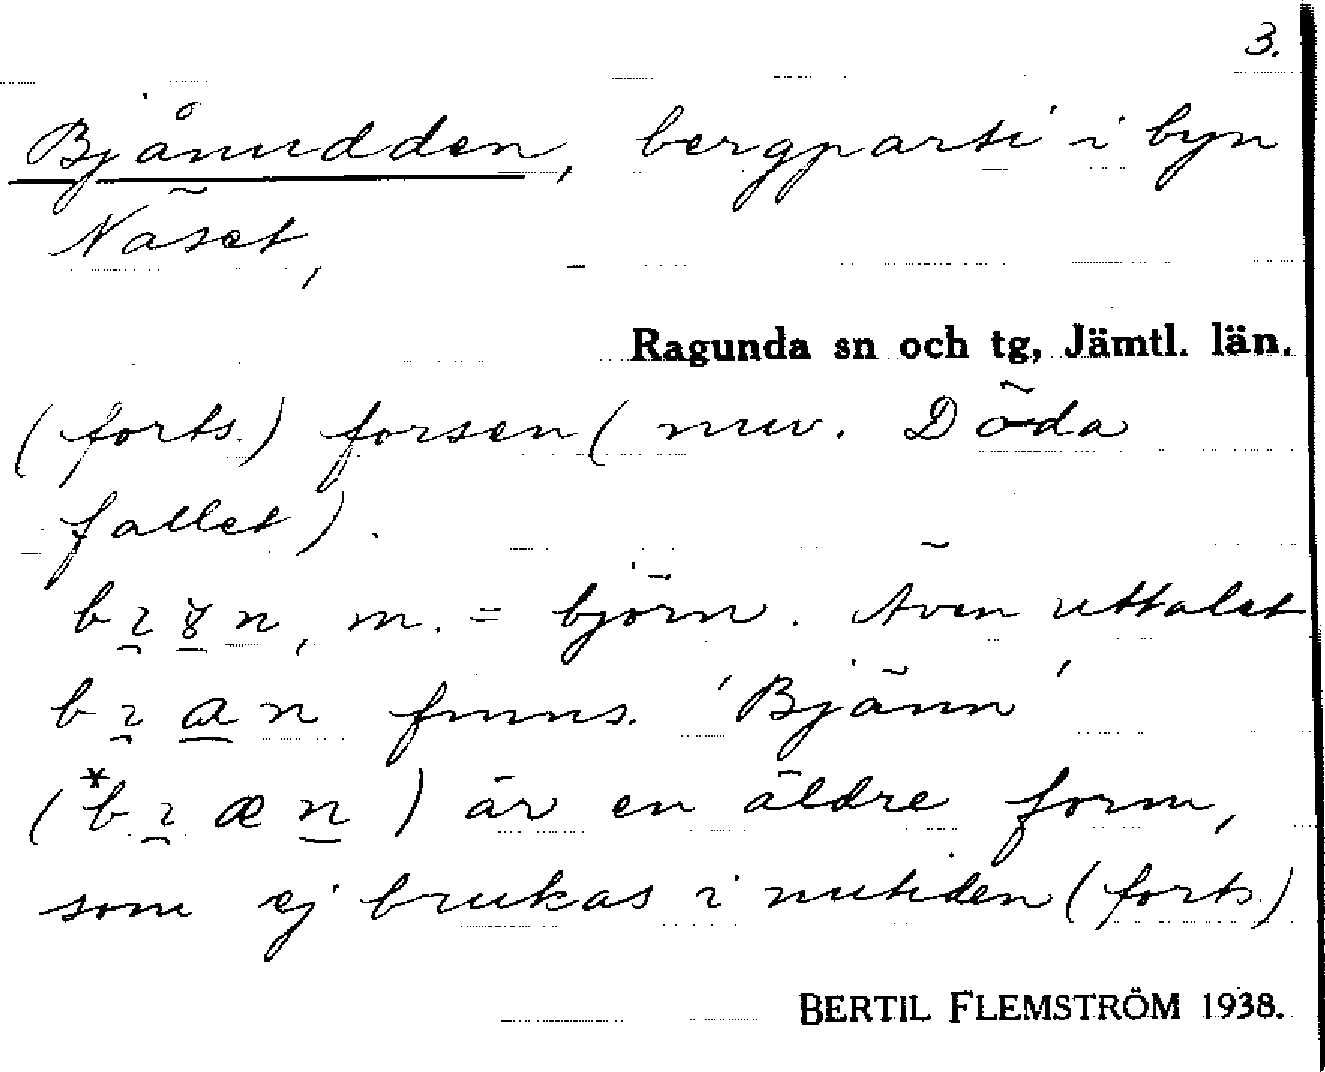 3.
Bjånudden, bergparti i byn
Näset,
Ragunda sn och tg, Jämtl. län.
(forts.) forsen (nuv. Döda
fallet).
m. = björn. Även uttalet
finns. 'Bjänn'
är en äldre form,
som ej brukas i nutiden (forts.)
BERTIL FLEMSTRÖM 1938.